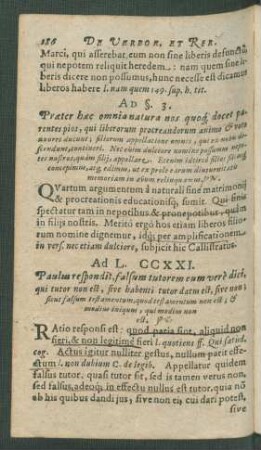 186 DE VERBOR. ET RER.
Marci, qui asserebat eum non sine liberis defunctū,
qui nepotem reliquit heredem: nam quem sine li-
beris dicere non possumus, hunc necesse est dicamus
liberos habere l. nam quem 149. sup. h. tit.
AD §. 3.
Præter hæc omnia natura nos quoq; docet pa-
rentes pios, qui liberorum procreandorum animo & voto
uxores ducunt, filiorum appellatione omnes, qui ex nobis de-
scendunt, continere. Nec enim dulciore nomine possumus nepo-
tes nostros, quàm filij, appellare. Etenim idcircò filios filiasq́;
concipimus, atq; edimus, ut ex prole eorum
memoriam in ævum relinquamus.
QVartum argumentum à naturali fine matrimonij
& procreationis educationisq́;, sumit. Qui finis
spectatur tam in nepotibus & pronepotibus, quàm
in filijs nostis. Meritò ergò hos etiam liberos filio-
rum nomine dignemur, idq́; per amplificationem
in vers. nec etiam dulciore, subjicit hic Callistratus.
Ad L. CCXXI.
Paulus respondit, falsum tutorem eum verè dici,
qui tutor non est, sive habenti tutor datus est, sive non:
sicut falsum testamentum, quod testamentum non est, &
modius iniquus, qui modius non
est.
RAtio responsi est: quod paria sint, aliquid non
fieri, & non legitimè fieri l. quotiens ff. Qui satisd.
cog. Actus igitur nulliter gestus, nullum parit effe-
ctum l. non dubium C. de legib. Appellatur quidem
falsus tutor, quasi tutor sit, sed is tamen verus non,
sed falsus, adeoq́; in effectu nullus est tutor, quia nō
ab his quibus dandi jus, sive non ei, cui dari potest,
sive